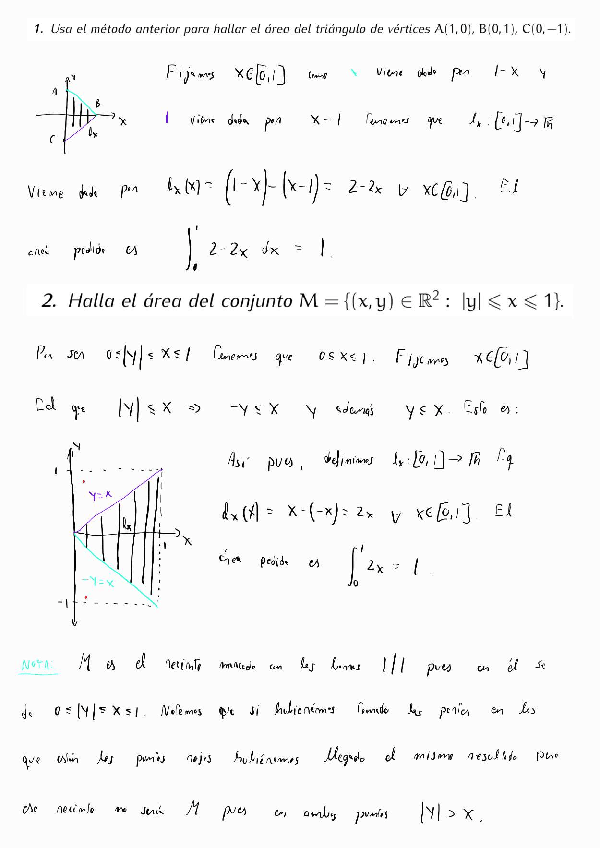 1. Usa el método anterior para hallar el área del triángulo de vértices A(1,0), B(0,1), C(0,−1).
Fijamos x∈[0,1] como \ viene dado por 1-x y
A
Y
B
X
C
lx
| viene dada por x-1 Tenemos que lx:[0,1]→ℝ
Viene dada por lx(x) = (1-x)-(x-1) = 2-2x ∀ x∈[0,1]. El
área pedida es ∫₀¹ 2-2x dx = 1.
2. Halla el área del conjunto M = {(x, y) ∈ ℝ² : |y| ⩽ x ⩽ 1}.
Por ser 0≤|y|≤x≤1 Tenemos que 0≤x≤1. Fijamos x∈[0,1]
tal que |y|≤x ⇒ -y≤x y además y≤x. Esto es:
Y
1
y=x
lx
1
X
-y=x
-1
Así pues, definimos lx:[0,1]→ℝ t.q
lx(x) = x-(-x) = 2x ∀ x∈[0,1]. El
área pedida es ∫₀¹ 2x = 1.
NOTA: M es el recinto marcado con las líneas /// pues en él se
da 0≤|y|≤x≤1. Notemos que si hubiéramos tomado las partes en las
que están los puntos rojos hubiéramos llegado al mismo resultado pero
ese recinto no sería M pues en ambos puntos |y|>x.